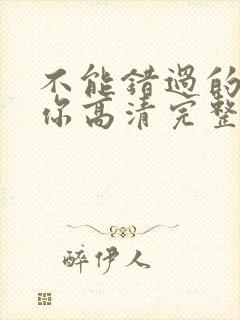 不能错过的
你高清完整
醉伊人